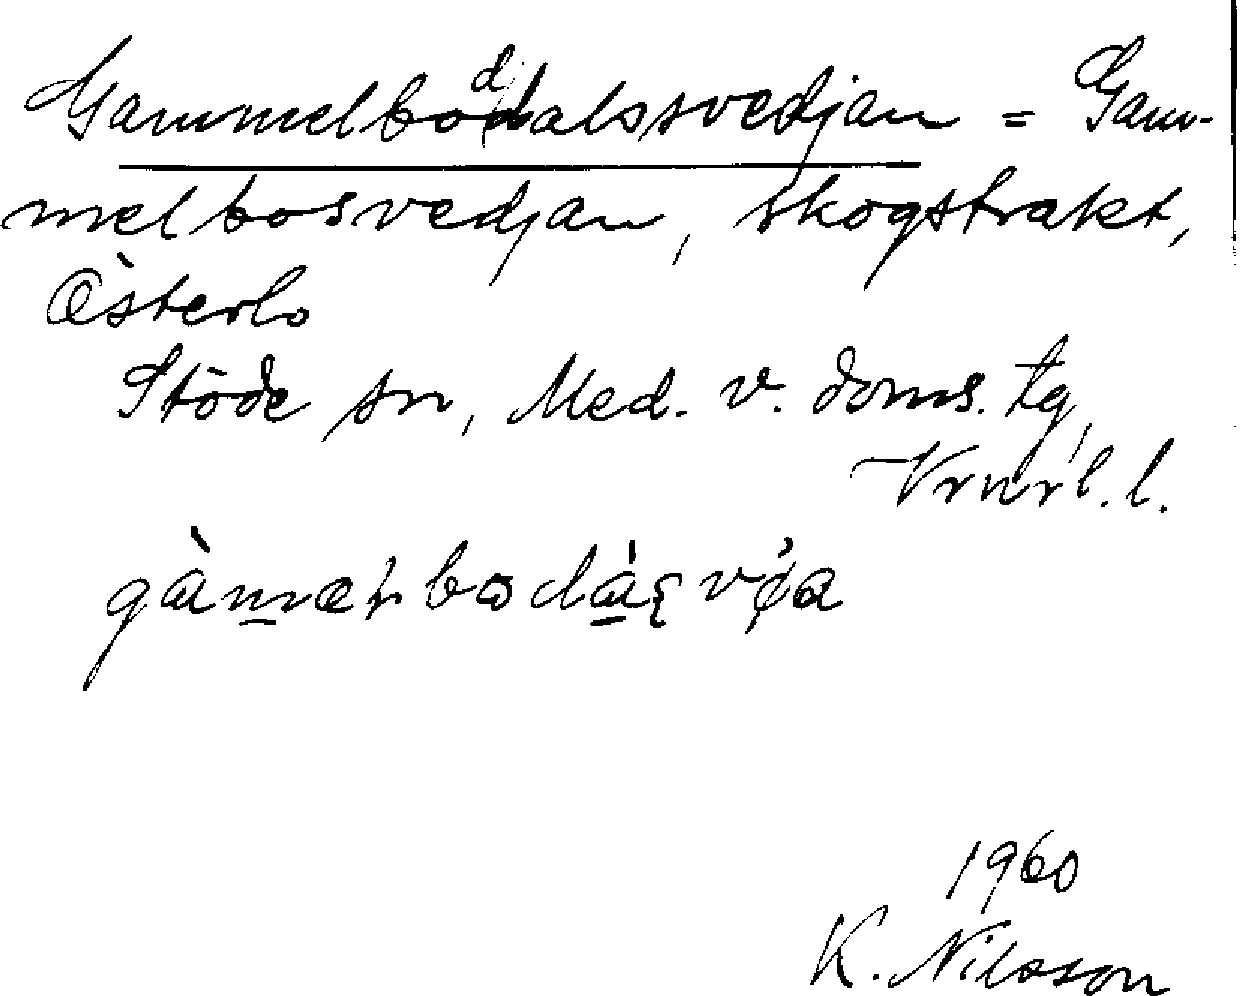 Gammelboddalssvedjan = Gam-
melbosvedjan, skogstrakt,
Österlo
Stöde sn, Med. v. doms. tg,
Vrnrl. l.
1960
K. Nilsson